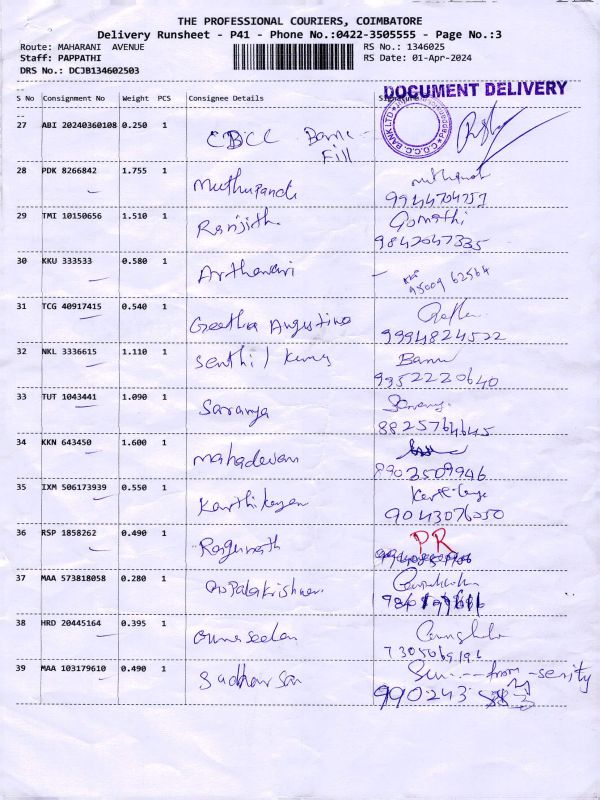 THE PROFESSIONAL COURIERS, COIMBATORE
Delivery Runsheet - P41 - Phone No.:0422-3505555 - Page No.:3
Route: MAHARANI AVENUE
RS No.: 1346025
Staff: PAPPATHI
RS Date: 01-Apr-2024
DRS No.: DCJB134602503
DOCUMENT DELIVERY
S No Consignment No Weight PCS Consignee Details
27 ABI 20240360108 0.250 1 CBCC Bank
Fill
28 PDK 8266842 1.755 1 Muthupandi
9944704757
29 TMI 10150656 1.510 1 Ranjith Gomathi
9842047335
30 KKU 333533 0.580 1 Arthanari
95009 62564
31 TCG 40917415 0.540 1 Geetha Augustina Geetha
9994824522
32 NKL 3336615 1.110 1 Senthil Kumar Banu
9952220640
33 TUT 1043441 1.090 1 Saranya
8825764645
34 KKN 643450 1.600 1 Mahadevan
8903509946
35 IXM 506173939 0.550 1 Karthikeyan
9043076050
36 RSP 1858262 0.490 1 Ragunath PR
37 MAA 573818058 0.280 1 Gopalakrishnan
38 HRD 20445164 0.395 1
7305069196
39 MAA 103179610 0.490 1 Sudharsan from
990243